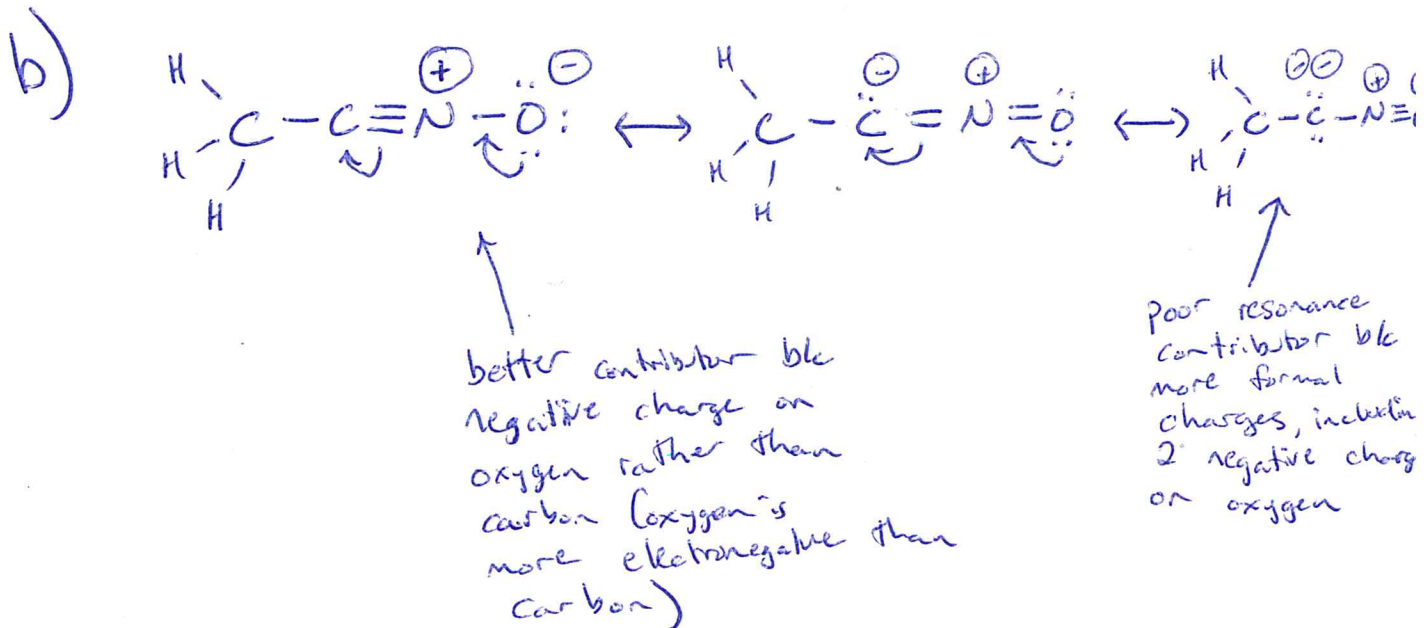 b)
H H H C - C ≡ N⊕ - Ö:⊖ ↔ H H H C - C̈⊖ = N⊕ = Ö ↔ H H H C - C̈⊖⊖ - N⊕ ≡
better contributor b/c
negative charge on
oxygen rather than
carbon (oxygen is
more electronegative than
carbon)
poor resonance
contributor b/c
more formal
charges, includin
2 negative charg
on oxygen